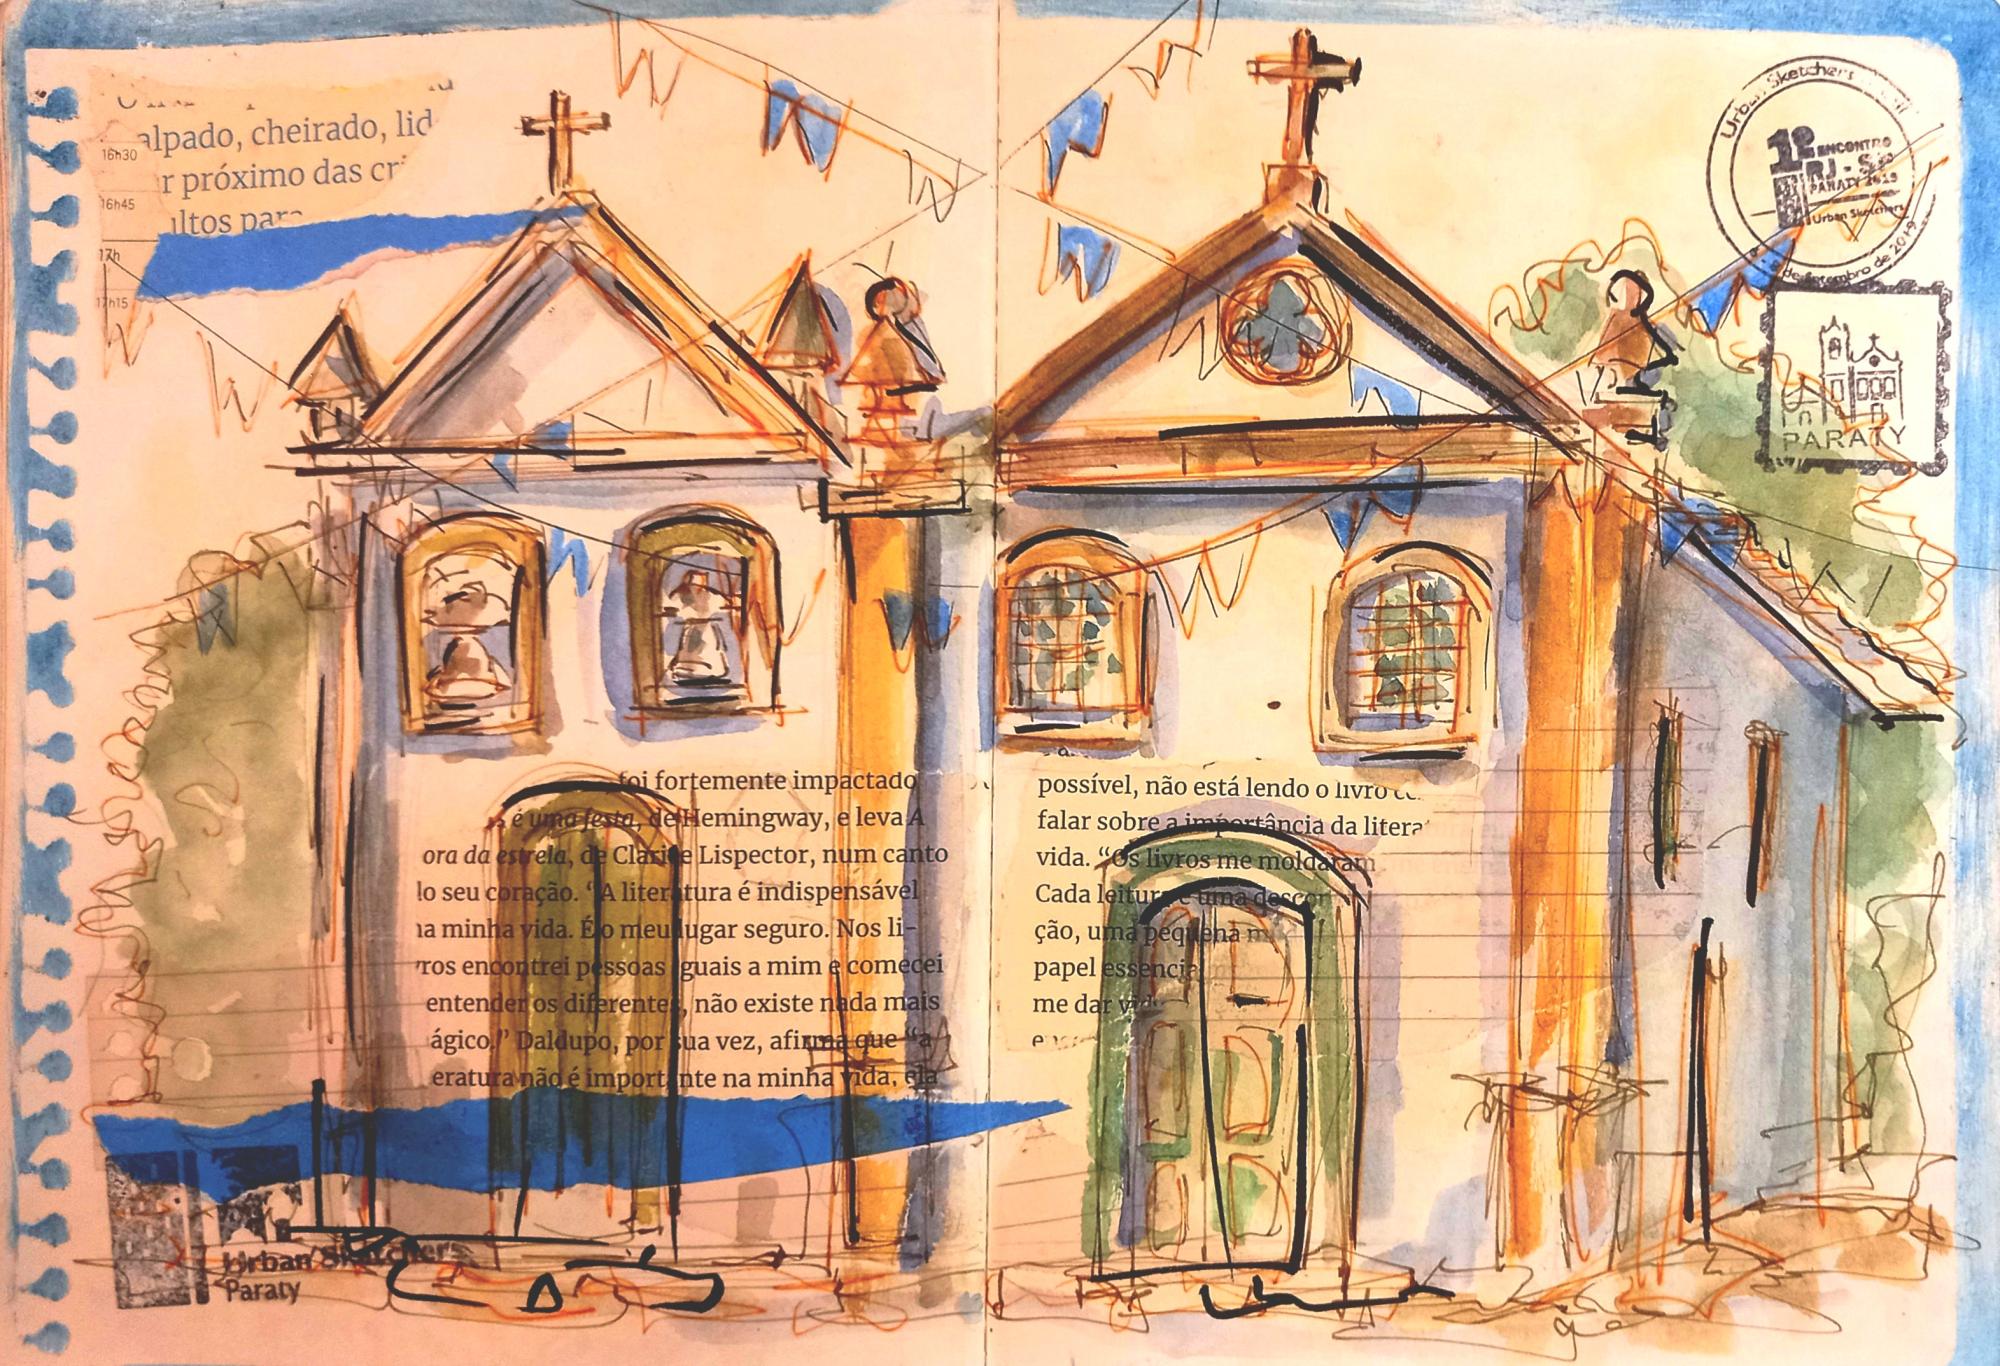 alpado, cheirado, lid
16h30
r próximo das cri
16h45
ultos para
17h
17h15
Urban Sketchers
1º ENCONTRO
RJ - SP
PARATY 2019
Urban Sketchers
de setembro de 2019
PARATY
foi fortemente impactado
é uma festa, de Hemingway, e leva A
ora da estrela, de Clarice Lispector, num canto
lo seu coração. “A literatura é indispensável
na minha vida. É o meu lugar seguro. Nos li-
vros encontrei pessoas iguais a mim e comecei
entender os diferentes, não existe nada mais
ágico.” Daldupo, por sua vez, afirma que “a
eratura não é importante na minha vida, ela
possível, não está lendo o livro
falar sobre a importância da litera
vida. “Os livros me moldaram
Cada leitura é uma descor
ção, uma pequena m
papel essencia
me dar vid
Urban Sketchers
Paraty